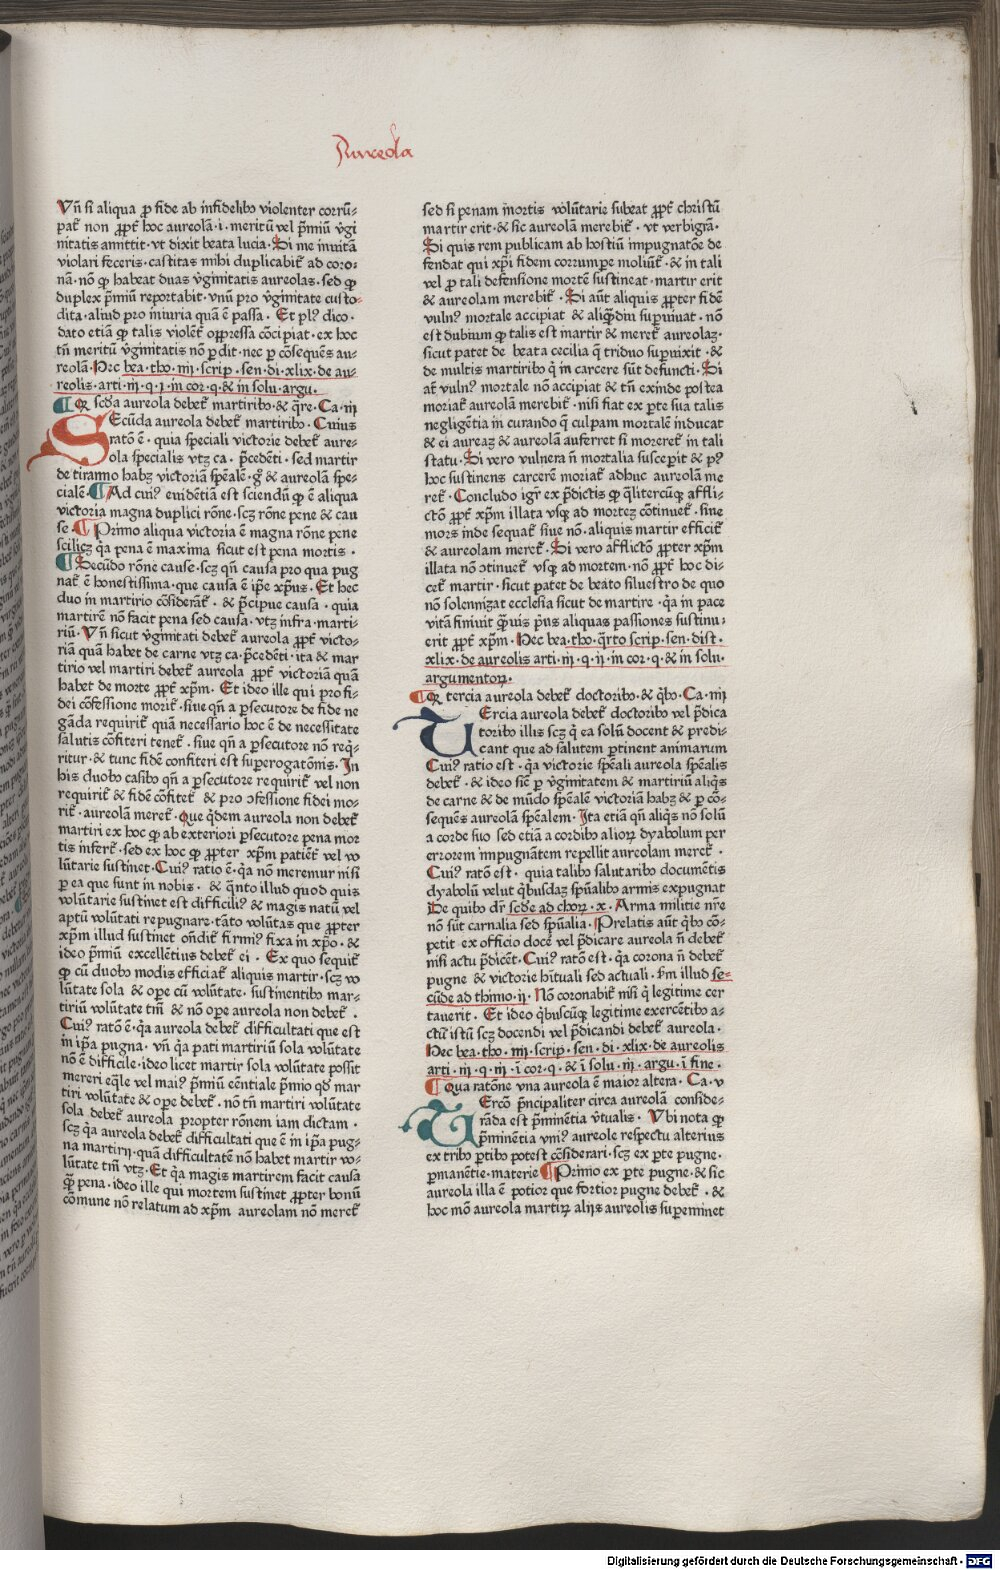 Aureola
Vn̄ si aliqua ꝑ fide ab infidelibꝰ violenter corrū-
pat᷑ non ꝓpt᷑ hoc aureolā·i·meritū vel p̄miū v̄gi
nitatis amittit·vt dixit beata lucia·Si me inuitā
violari feceris·castitas mihi duplicabit᷑ ad coro-
nā·nō ꝙ habeat duas v̄ginitatis aureolas·sed ꝙ
duplex p̄miū reportabit·vnū pro v̄ginitate custo-
dita·aliud pro iniuria quā ē passa·Et plꝰ dico·
dato etiā ꝙ talis violēt᷑ oppressa cōcipiat·ex hoc
tn̄ meritū v̄ginitatis nō ꝑdit·nec ꝑ cōsequēs au-
reolā·Hec bea·tho·iiij·scrip·sen·di·xlix·de au-
reolis·arti·iij·q·i·in cor·q·& in solu·argu·
¶Q scd̄a aureola debet᷑ martiribꝰ·& q̄re·Ca·iij
SEcūda aureola debet᷑ martiribꝰ·Cuius
ratō ē·quia speciali victorie debet᷑ aure-
ola specialis vtꝫ ca·p̄cedēti·sed martir
de tiranno habꝫ victoriā sp̄ealē·gͦ & aureolā spe-
cialē·¶Ad cuiꝰ euidētiā est sciendū ꝙ ē aliqua
victoria magna duplici rōne·scꝫ rōne pene & cau
se·¶Primo aliqua victoria ē magna rōne pene
scilicꝫ q̄a pena ē maxima sicut est pena mortis·
¶Secūdo rōne cause·scꝫ qn̄ causa pro qua pug
nat᷑ ē honestissima·que causa ē ip̄e xp̄us·Et hec
duo in martirio cōsiderāt᷑·& p̄cipue causa·quia
martirē nō facit pena sed causa·vtꝫ infra·marti-
riū·Vn̄ sicut v̄ginitati debet᷑ aureola ꝓpt᷑ victo-
riā quā habet de carne vtꝫ ca·p̄cedēti·ita & mar
tirio vel martiri debet᷑ aureola ꝓpt᷑ victoriā quā
habet de morte ꝓpt᷑ xp̄m·Et ideo ille qui pro fi-
dei cōfessione morit᷑·siue qn̄ a ꝑsecutore de fide ne
gāda requirit᷑ quā necessario hoc ē de necessitate
salutis cōfiteri tenet᷑·siue qn̄ a ꝑsecutore nō req̄-
ritur·& tunc fidē confiteri est suꝑerogatōnis·In
his duobꝰ casibꝰ qn̄ a ꝑsecutore requirit᷑ vel non
requirit᷑ & fidē cōfitet᷑ & pro ↄfessione fidei mo-
rit᷑·aureolā meret᷑·Que q̄dem aureola non debet᷑
martiri ex hoc ꝙ ab exteriori ꝑsecutore pena mor
tis infert᷑·sed ex hoc ꝙ ꝓpter xp̄m patiēt᷑ vel vo
lūtarie sustinet·Cuiꝰ ratio ē·q̄a nō meremur nisi
ꝑ ea que sunt in nobis·& q̄nto illud quod quis
volūtarie sustinet est difficiliꝰ & magis natū vel
aptū volūtati repugnare·tāto volūtas que ꝓpter
xp̄m illud sustinet on̄dit᷑ firmiꝰ fixa in xp̄o·&
ideo p̄miū excellētius debet᷑ ei·Ex quo sequit᷑
ꝙ cū duobꝰ modis efficiat᷑ aliquis martir·scꝫ vo
lūtate sola & oꝑe cū volūtate·sustinentibꝰ mar-
tiriū volūtate tm̄ & nō oꝑe aureola non debet᷑·
Cuiꝰ ratō ē·q̄a aureola debet᷑ difficultati que est
in ip̄a pugna·vn̄ q̄a pati martiriū sola volūtate
nō ē difficile·ideo licet martir sola volūtate possit
mereri eq̄le vel maiꝰ p̄miū eēntiale p̄mio qd̄ mar
tiri volūtate & oꝑe debet᷑·nō tn̄ martiri volūtate
sola debet᷑ aureola propter rōnem iam dictam·
scꝫ q̄a aureola debet᷑ difficultati que ē in ip̄a pug-
na martirij·quā difficultatē nō habet martir vo-
lūtate tm̄ vtꝫ·Et q̄a magis martirem facit causa
ꝙ̄ pena·ideo ille qui mortem sustinet ꝓpter bonū
cōmune nō relatum ad xp̄m aureolam nō meret᷑
sed si penam mortis volūtarie subeat ꝓpt᷑ christū
martir erit·& sic aureolā merebit᷑·vt verbigrā·
Si quis rem publicam ab hostiū impugnatōe de
fendat qui xp̄i fidem corrumꝑe moliūt᷑·& in tali
vel ꝑ tali defensione mortē sustineat·martir erit
& aureolam merebit᷑·Si aūt aliquis ꝓpter fidē
vulnꝰ mortale accipiat & aliq̄diu suꝑuiuat·nō
est dubium ꝙ talis est martir & meret᷑ aureolaꝫ·
sicut patet de beata cecilia q̄ triduo suꝑuixit·&
de multis martiribꝰ q̄ in carcere sūt defuncti·Si
at᷑ vulnꝰ mortale nō accipiat & tn̄ exinde postea
moriat᷑ aureolā merebit᷑·nisi fiat ex ꝑte sua talis
negligētia in curando q̄ culpam mortalē inducat
& ei aureaꝫ & aureolā auferret si moreret᷑ in tali
statu·Si vero vulnera n̄ mortalia susceꝑit & pꝰ
hoc sustinens carcerē moriat᷑ adhuc aureolā me
ret᷑·Concludo igr̄ ex p̄dictis ꝙ q̄litercūqꝫ afflic-
ctō ꝓpt᷑ xp̄m illata vsqꝫ ad morteꝫ cōtinuet᷑·siue
mors inde sequat᷑ siue nō·aliquis martir efficit᷑
& aureolam meret᷑·Si vero afflictō ꝓpter xp̄m
illata nō ↄtinuet᷑ vsqꝫ ad mortem·nō ꝓpt᷑ hoc di-
cet᷑ martir·sicut patet de beato siluestro de quo
nō solennizat ecclesia sicut de martire·q̄a in pace
vitā finiuit q̄uis p̄us aliquas passiones sustinu-
erit ꝓpt᷑ xp̄m·Hec bea·tho·q̄rto scrip·sen·dist·
xlix·de aureolis arti·iij·q·ij·in cor·q·& in solu·
argumentoꝝ·
¶Q tercia aureola debet᷑ doctoribꝰ·& q̄bꝰ·Ca·iiij
TErcia aureola debet᷑ doctoribꝰ vel p̄dica
toribꝰ illis scꝫ q̄ ea solū docent & predi-
cant que ad salutem ꝑtinent animarum
Cuiꝰ ratio est·q̄a victorie sp̄eali aureola sp̄ealis
debet᷑·& ideo siē ꝑ v̄ginitatem & martiriū aliq̄s
de carne & de mūdo sp̄ealē victoriā habꝫ & ꝑ cō-
sequēs aureolā sp̄ealem·Ita etiā qn̄ aliq̄s nō solū
a corde suo sed etiā a cordibꝰ alioꝝ dyabolum per
errorem impugnātem repellit aureolam meret᷑·
Cuiꝰ ratō est·quia talibꝰ salutaribꝰ documētis
dyabolū velut q̄busdaꝫ sp̄ualibꝰ armis expugnat
De quibꝰ dr̄ scd̄e ad choꝝ·x·Arma militie nr̄e
nō sūt carnalia sed sp̄ualia·Prelatis aūt q̄bꝰ cō-
petit ex officio docē vel p̄dicare aureola n̄ debet᷑
nisi actu p̄dicēt·Cuiꝰ ratō est·q̄a corona n̄ debet᷑
pugne & victorie hītuali sed actuali·ẜm illud se-
cūde ad thimo·ij·Nō coronabit᷑ nisi q̄ legitime cer
tauerit·Et ideo q̄buscūqꝫ legitime exercētibꝰ a-
ctū istū scꝫ docendi vel p̄dicandi debet᷑ aureola·
Hec bea·tho·iiij·scrip·sen·di·xlix·de aureolis
arti·iij·q·iij·ī cor·q·& ī solu·iij·argu·ī fine·
¶Qua ratōne vna aureola ē maior altera·Ca·v
TErcō p̄ncipaliter circa aureolā conside-
rāda est p̄minētia v̄tualis·Vbi nota ꝙ
p̄minētia vniꝰ aureole respectu alterius
ex tribꝰ ꝑtibꝰ potest cōsiderari·scꝫ ex ꝑte pugne·
ꝑmanētie·materie ¶Primo ex ꝑte pugne·& sic
aureola illa ē potior que fortior pugne debet᷑·&
hoc mō aureola martiꝝ alijs aureolis suꝑeminet
Digitalisierung gefördert durch die Deutsche Forschungsgemeinschaft - DFG